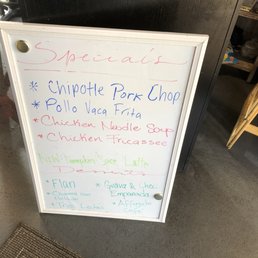 Specials
* Chipotle Pork Chop
* Pollo Vaca Frita
* Chicken Noodle Soup
* Chicken Fricassee
Pumpkin Spice Latte
Desserts
* Flan
* Tres Leches
* Guava & Choc
Empanada
* Affogato